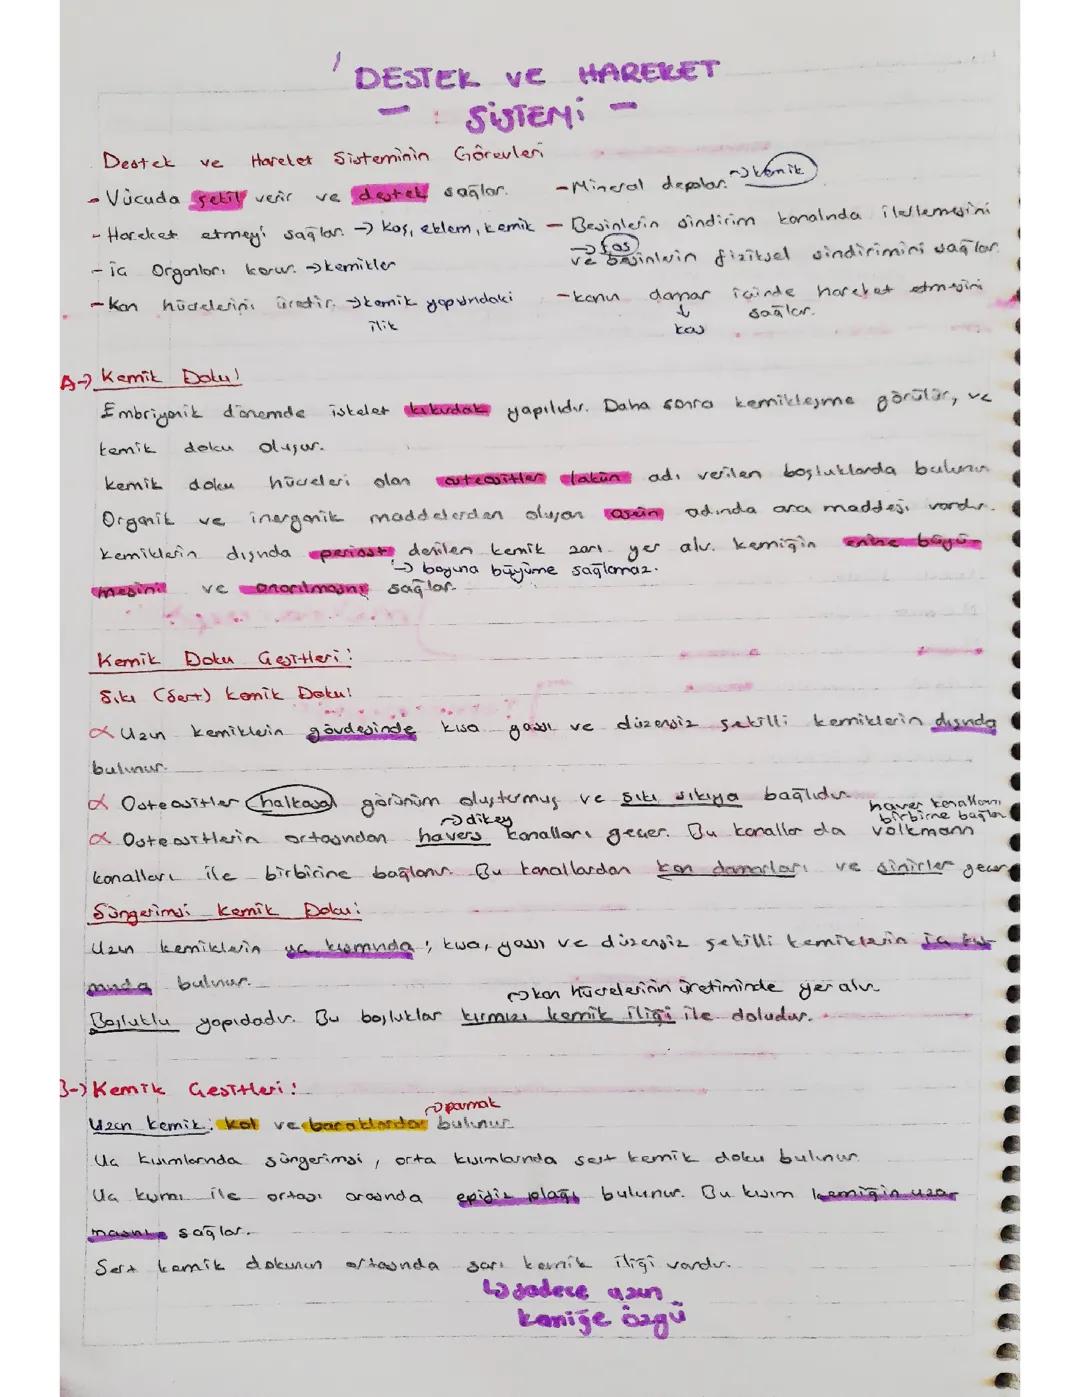 DESTEK VE HAREKET
- SİSTEMİ -
Destek ve Hareket Sisteminin Görevleri
- Vücuda şekil verir ve destek sağlar.
- Hareket etmeyi sağlar. → kas, eklem, kemik
- İç Organları korur. → kemikler
- Kan hücrelerini üretir. → kemik yapısındaki
ilik
- Mineral depolar. → kemik
- Besinlerin sindirim kanalında ilerlemesini
→ kas
ve besinlerin fiziksel sindirimini sağlar.
- kanın damar içinde hareket etmesini
↓ sağlar.
kas
A-) Kemik Doku!
Embriyonik dönemde iskelet kıkırdak yapılıdır. Daha sonra kemikleşme görülür, ve
kemik doku oluşur.
kemik doku hücreleri olan osteositler lakün adı verilen boşluklarda bulunur.
Organik ve inorganik maddelerden oluşan osein adında ara maddesi vardır.
kemiklerin dışında periost denilen kemik zarı yer alır. kemiğin enine büyü-
→ boyuna büyüme sağlamaz.
mesini ve onarılmasını sağlar.
Kemik Doku Çeşitleri:
Sıkı (Sert) kemik Doku:
α Uzun kemiklerin gövdesinde kısa yassı ve düzensiz şekilli kemiklerin dışında
bulunur.
α Osteositler halkasal görünüm oluşturmuş ve sıkı sıkıya bağlıdır.
→ dikey
havers kanallarını
birbirine bağlar
α Osteositlerin ortasından havers kanalları geçer. Bu kanallar da volkmann
kanalları ile birbirine bağlanır. Bu kanallardan kan damarları ve sinirler geçer
Süngerimsi Kemik Doku:
Uzun kemiklerin uç kısmında; kısa, yassı ve düzensiz şekilli kemiklerin iç kıs-
mında bulunur.
→ kan hücrelerinin üretiminde yer alır
Boşluklu yapıdadır. Bu boşluklar kırmızı kemik iliği ile doludur.
B-) Kemik Çeşitleri:
→ parmak
Uzun kemik: kol ve bacaklarda bulunur
Uç kısımlarında süngerimsi, orta kısımlarında sert kemik doku bulunur
Uç kısmı ile ortası arasında epifiz plağı bulunur. Bu kısım kemiğin uza-
masını sağlar.
Sert kemik dokunun ortasında sarı kemik iliği vardır.
↳ sadece uzun
kemiğe özgü